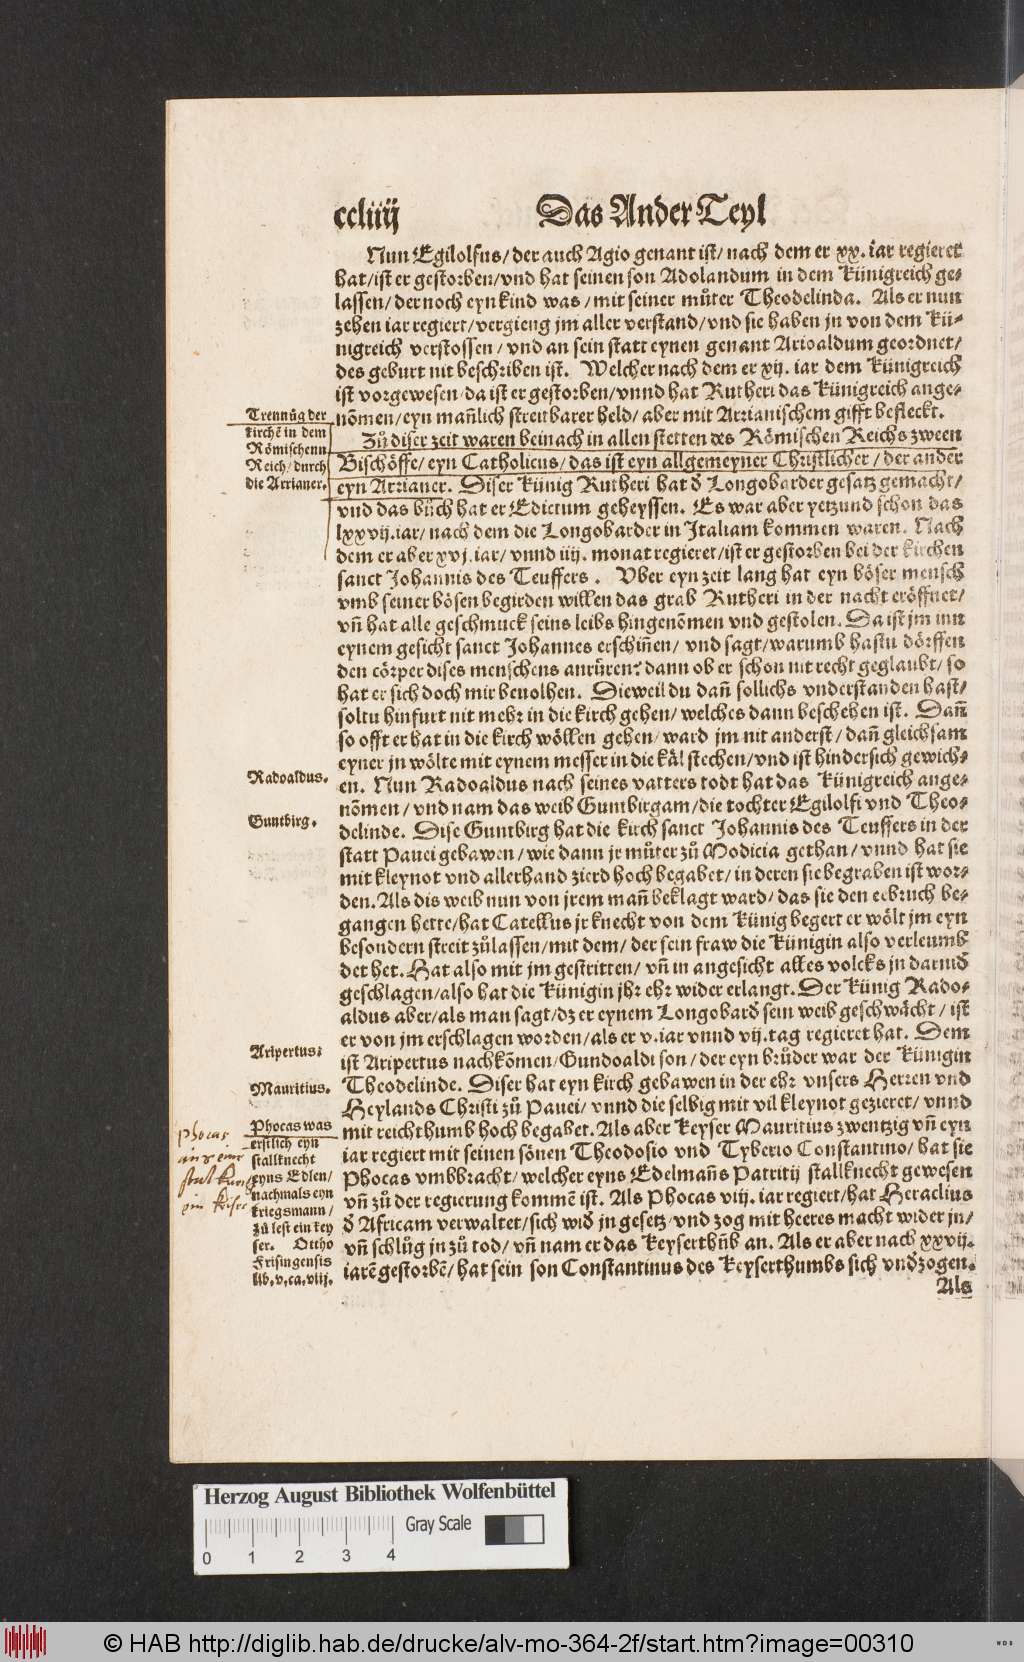 ccliiij
Das Ander Teyl
Nun Egilolfus/ der auch Agio genant ist/ nach dem er xx. iar regieret
hat/ ist er gestorben/ vnd hat seinen son Adolandum in dem Künigreich ge⸗
lassen/ der noch eyn kind was/ mit seiner můter Theodelinda. Als er nun
zehen iar regiert/ vergieng jm aller verstand/ vnd sie haben jn von dem Kü⸗
nigreich verstossen/ vnd an sein statt eynen genant Arioaldum geordnet/
des geburt nit beschriben ist. Welcher nach dem er xij. iar dem Künigreich
ist vorgewesen/ da ist er gestorben/ vnnd hat Rutheri das Künigreich ange⸗
nõmen/ eyn mañlich streitbarer held/ aber mit Arrianischem gifft befleckt.
Zů diser zeit waren beinach in allen stetten des Römischen Reichs zween
Bischöffe/ eyn Catholicus/ das ist eyn allgemeyner Christlicher/ der ander
eyn Arrianer. Diser Künig Rutheri hat d̕ Longobarder gesatz gemacht/
vnd das bůch hat er Edictum geheyssen. Es war aber yetzund schon das
lxxvij. iar/ nach dem die Longobarder in Italiam kommen waren. Nach
dem er aber xvj. iar/ vnnd iiij. monat regieret/ ist er gestorben bei der kirchen
sanct Johannis des Teuffers. Vber eyn zeit lang hat eyn böser mensch
vmb seiner bösen begirden willen das grab Rutheri in der nacht eröffnet/
vñ hat alle geschmuck seins leibs hingenõmen vnd gestolen. Da ist jm inn
eynem gesicht sanct Johannes erschiñen/ vnd sagt/ warumb hastu dörffen
den cörper dises menschens anrüren? dann ob er schon nit recht geglaubt/ so
hat er sich doch mir beuolhen. Dieweil du dañ sollichs vnderstanden hast/
soltu hinfurt nit mehr in die kirch gehen/ welches dann beschehen ist. Dañ
so offt er hat in die kirch wöllen gehen/ ward jm nit anderst/ dañ gleichsam
eyner jn wölte mit eynem messer in die käl stechen/ vnd ist hindersich gewich⸗
en. Nun Radoaldus nach seines vatters todt hat das Künigreich ange⸗
nõmen/ vnd nam das weib Guntbirgam/ die tochter Egilolfi vnd Theo⸗
delinde. Dise Guntbirg hat die kirch sanct Johannis des Teuffers in der
statt Pauei gebawen/ wie dann jr můter zů Modicia gethan/ vnnd hat sie
mit kleynot vnd allerhand zierd hoch begabet/ in deren sie begraben ist wor⸗
den. Als dis weib nun von jrem mañ beklagt ward/ das sie den eebruch be⸗
gangen hette/ hat Catellus jr knecht von dem Künig begert er wölt jm eyn
besondern streit zůlassen/ mit dem/ der sein fraw die Künigin also verleumb
det het. Hat also mit jm gestritten/ vñ in angesicht alles volcks jn darnid̕
geschlagen/ also hat die Künigin jhr ehr wider erlangt. Der Künig Rado⸗
aldus aber/ als man sagt/ dz er eynem Longobard̕ sein weib geschwächt/ ist
er von jm erschlagen worden/ als er v. iar vnnd vij. tag regieret hat. Dem
ist Aripertus nachkõmen/ Gundoaldi son/ der eyn brůder war der Künigin
Theodelinde. Diser hat eyn kirch gebawen in der ehr vnsers Herren vnd
Heylands Christi zů Pauei/ vnnd die selbig mit vil kleynot gezieret/ vnnd
mit reichthumb hoch begabet. Als aber Keyser Mauritius zwentzig vñ eyn
iar regiert mit seinen sönen Theodosio vnd Tyberio Constantino/ hat sie
Phocas vmbbracht/ welcher eyns Edelmañs Patritij stallknecht gewesen
vñ zů der regierung kommẽ ist. Als Phocas viij. iar regiert/ hat Heraclius
d̕ Africam verwaltet/ sich wid̕ jn gesetz/ vnd zog mit heeres macht wider jn/
vñ schlůg jn zů tod/ vñ nam er das Keyserthũb an. Als er aber nach xxvij.
iarẽ gestorbẽ/ hat sein son Constantinus des Keyserthumbs sich vnd̕zogen.
Als
Trennũg der
kirchẽ in dem
Römischenn
Reich/ durch
die Arrianer.
Radoaldus.
Guntbirg.
Aripertus:
Mauritius.
Phocas was
erstlich eyn
stallknecht
eyns Edlen/
nachmals eyn
kriegsmann/
zů lest ein key
ser. Ottho
Frisingensis
lib. v. ca. viij.
Phocas
Herzog August Bibliothek Wolfenbüttel
Gray Scale
0 1 2 3 4
© HAB http://diglib.hab.de/drucke/alv-mo-364-2f/start.htm?image=00310